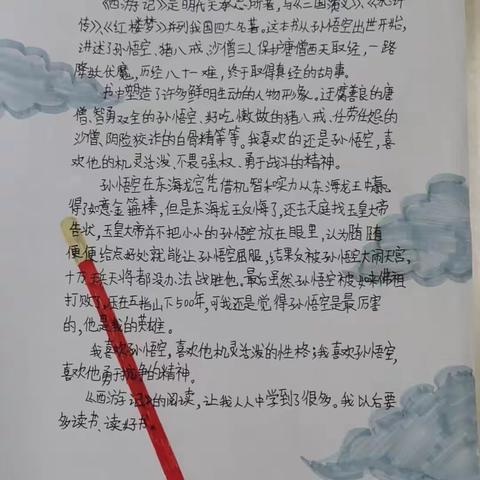 《西游记》是明代吴承恩所著,与《三国演义》、《水浒
传》、《红楼梦》并列我国四大名著。这本书从孙悟空出世开始,
讲述了孙悟空、猪八戒、沙僧三人保护唐僧西天取经,一路
降妖伏魔,历经八十一难,终于取得真经的故事。
书中塑造了许多鲜明生动的人物形象。迂腐善良的唐
僧、智勇双全的孙悟空、好吃懒做的猪八戒、任劳任怨的
沙僧、阴险狡诈的白骨精等等。我喜欢的还是孙悟空,喜
欢他的机灵活泼、不畏强权、勇于战斗的精神。
孙悟空在东海龙宫凭借机智和实力从东海龙王中赢
得了如意金箍棒,但是东海龙王反悔了,还去天庭找玉皇大帝
告状,玉皇大帝并不把小小的孙悟空放在眼里,认为随随
便便给点好处就能让孙悟空屈服,结果反被孙悟空大闹天宫,
十万天将都没办法战胜他。最后虽然孙悟空被如来佛祖
打败了,压在五指山下500年,可我还是觉得孙悟空是最厉害
的,他是我的英雄。
我喜欢孙悟空,喜欢他机灵活泼的性格;我喜欢孙悟空,
喜欢他勇于抗争的精神。
《西游记》的阅读,让我从中学到了很多。我以后要
多读书、读好书。